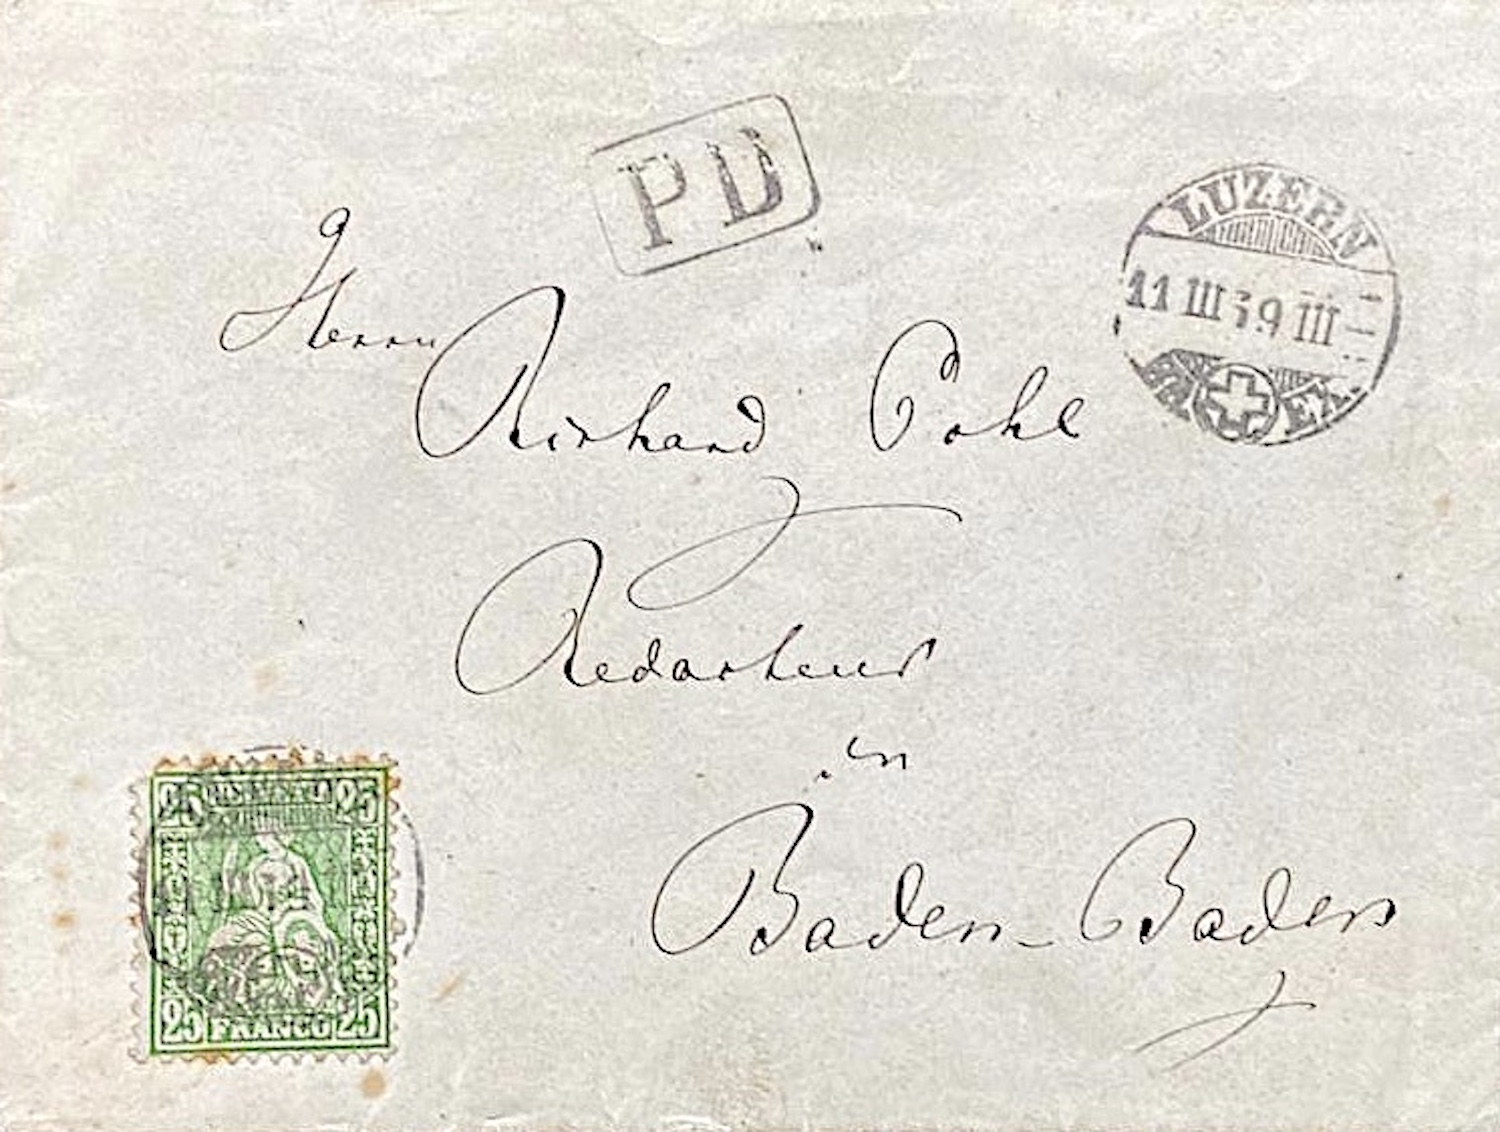 PD
LUZERN
11 III 69 III
BR. EX.
Herrn
Richard Pohl
Redacteur
in
Baden-Baden
25 HELVETIA 25
25 FRANCO 25